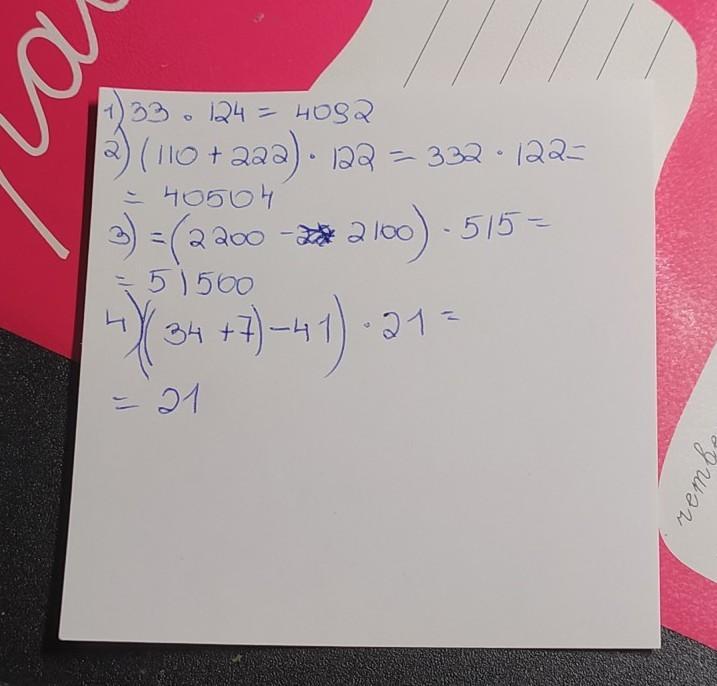 1) 33 · 124 = 4092
2) (110 + 222) · 122 = 332 · 122 =
= 40504
3) = (2200 - 2100) · 515 =
= 51500
4) ((34 + 7) - 41) · 21 =
= 21